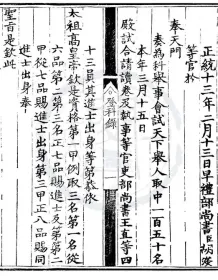 正統十三年二月十三日早禮部尚書臣胡濙
等官於
奏天門
奏為科舉事會試天下舉人取中一百五十名
本年三月十五日
殿試合請讀卷及執事等官吏部尚書王直等四
登科錄
十三員其進士出身等第恭依
太祖高皇帝欽定資格第一甲例取三名第一名從
六品第二第三名正七品賜進士及第第二
甲從七品賜進士出身第三甲正八品賜同
進士出身奉
聖旨是欽此